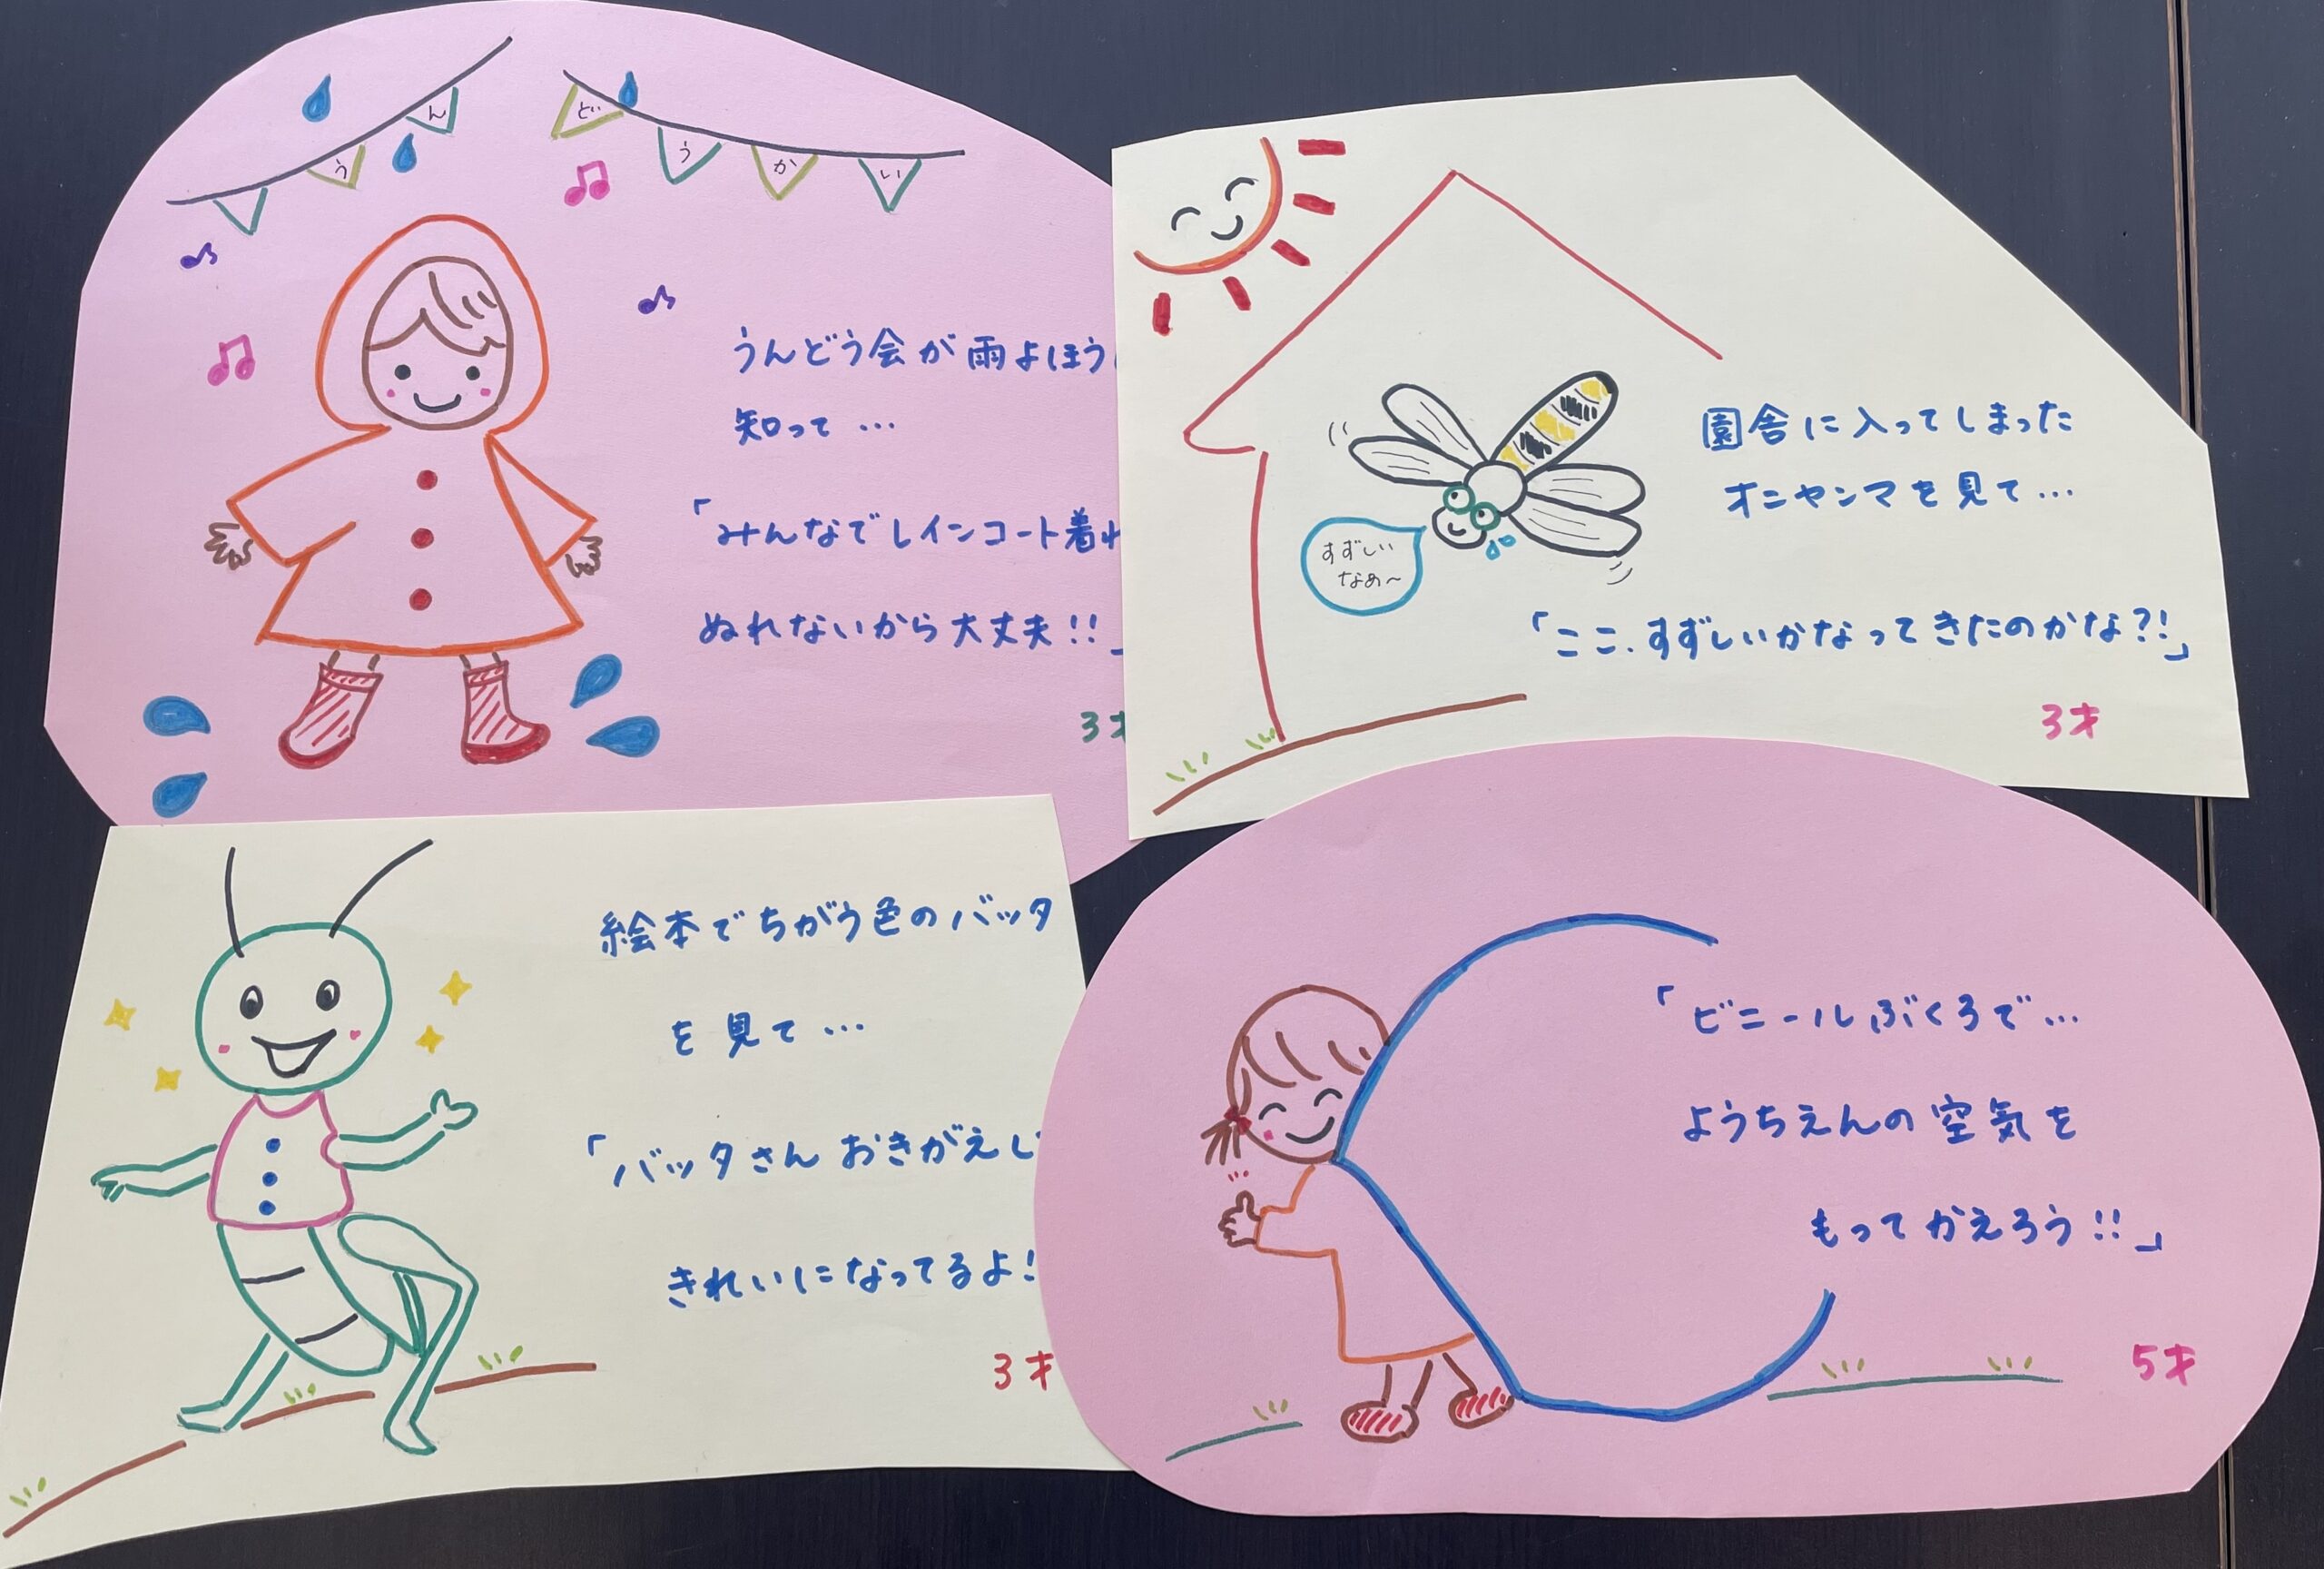 う ん ど う か い
うんどう会が雨よほう
知って…
「みんなでレインコート着
ぬれないから大丈夫!!」
3才
園舎に入ってしまった
オニヤンマを見て…
すずしい
なぁ〜
「ここ、すずしいかなってきたのかな?!」
3才
絵本でちがう色のバッタ
を見て…
「バッタさん おきがえし
きれいになってるよ!
3才
「ビニールぶくろで…
ようちえんの空気を
もってかえろう!!」
5才